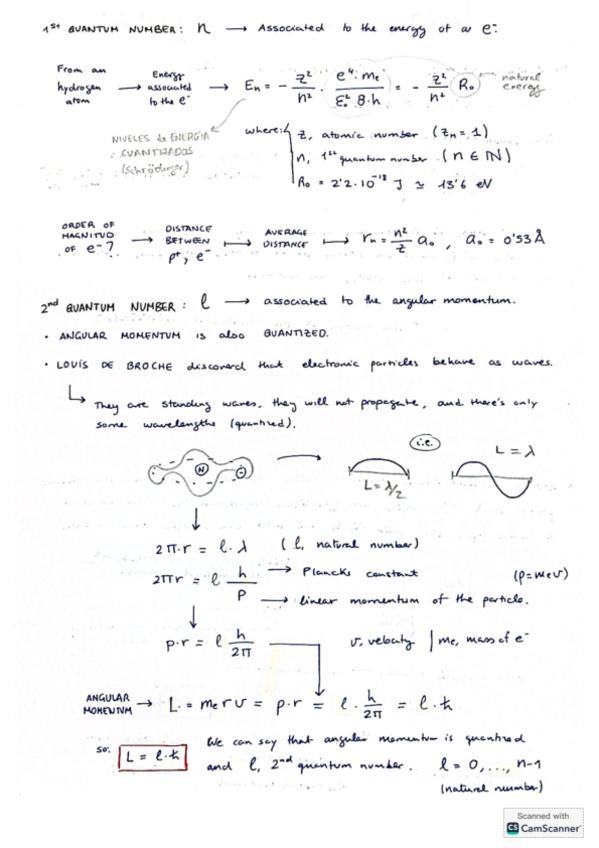 1st QUANTUM NUMBER: n → Associated to the energy of a e⁻.
From an hydrogen atom → Energy associated to the e⁻ → En = - z²/n² · e⁴·me/ε₀²·8·h = - z²/n² R₀ natural energy
NIVELES de ENERGÍA CUANTIZADOS (Schrödinger)
where: z, atomic number (zH = 1)
n, 1st quantum number (n ∈ ℕ)
R₀ = 2'2·10⁻¹⁸ J ≃ 13'6 eV
ORDER OF MAGNITUD OF e⁻? → DISTANCE BETWEEN p⁺, e⁻ ↦ AVERAGE DISTANCE ↦ rn = n²/z a₀, a₀ = 0'53 Å
2nd QUANTUM NUMBER: l → associated to the angular momentum.
· ANGULAR MOMENTUM is also QUANTIZED.
· LOUIS DE BROCHE discoverd that electronic particles behave as waves.
↳ They are standing waves, they will not propagate, and there's only
some wavelengths (quantized).
i.e.
N - → L = λ/2 L = λ
2π·r = l·λ (l, natural number)
2πr = l h/p → Plancks constant (p = mev)
→ linear momentum of the particle.
p·r = l h/2π v, velocity | me, mass of e⁻
ANGULAR MOMENTUM → L = me r v = p·r = l · h/2π = l·ħ
so: L = l·ħ We can say that angular momentum is quantized
and l, 2nd quantum number. l = 0, ..., n-1
(natural number)
Scanned with
CS CamScanner